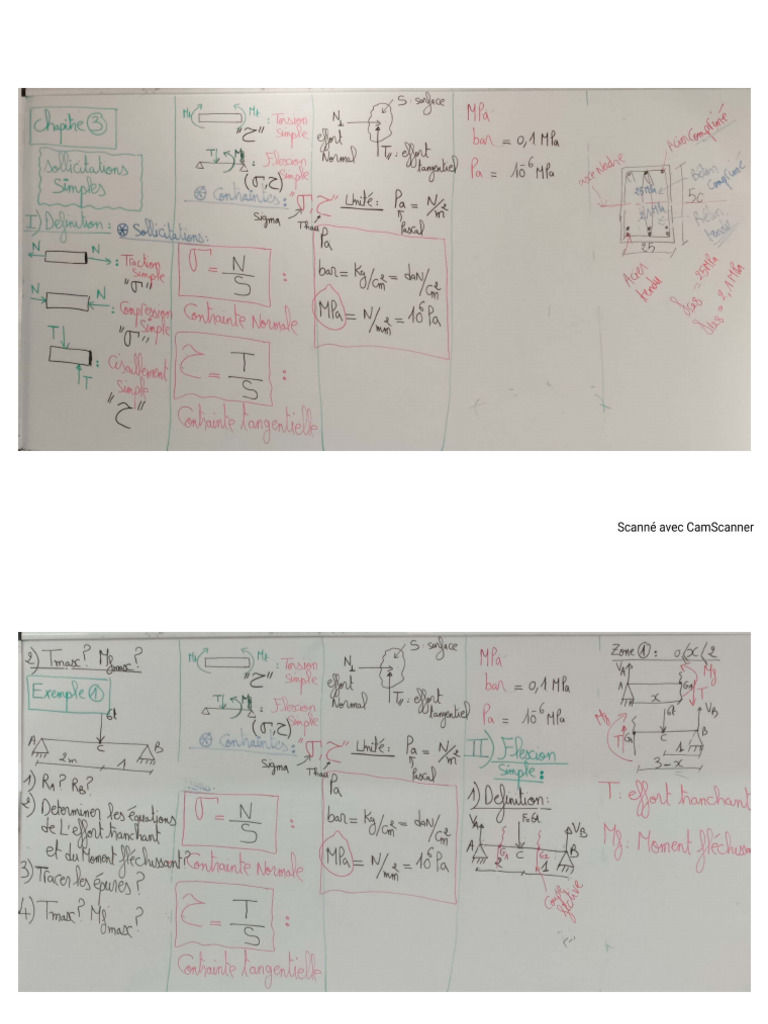 Chapitre ③
Sollicitations
Simples
I) Definition: ⊛ Sollicitations:
N N : Traction
Simple
"σ"
N N : Compression
Simple
"σ"
T
T : Cisaillement
Simple
"τ"
Mt Mt : Torsion
Simple
"τ"
T Mf : Flexion
Simple
(σ,τ)
⊛ Contraintes: "σ τ"
Sigma Thau
σ = N/S :
Contrainte Normale
τ = T/S :
Contrainte tangentielle
S: surface
N
effort
Normal
T: effort
tangentiel
Unité: Pa = N/m²
Pascal
Pa
bar = Kg/cm² = daN/cm²
MPa = N/mm² = 10⁶ Pa
MPa
bar = 0,1 MPa
Pa = 10⁻⁶ MPa
Acier Comprimé
axe Neutre
Béton
Comprimé
25
Béton
tendu
25
Aciers
tendu
= 25 MPa
= 2,1 MPa
Scanné avec CamScanner
2) Tmax? Mfmax?
Exemple ①
6t
A C B
2m 1
1) RA? RB?
2) Determiner les équations
de L'effort tranchant
et du Moment fléchissant?
3) Tracer les épures?
4) Tmax? Mfmax?
Mt Mt : Torsion
Simple
"τ"
T Mf : Flexion
Simple
(σ,τ)
⊛ Contraintes: "σ τ"
Sigma Thau
σ = N/S :
Contrainte Normale
τ = T/S :
Contrainte tangentielle
S: surface
N
effort
Normal
T: effort
tangentiel
Unité: Pa = N/m²
Pascal
Pa
bar = Kg/cm² = daN/cm²
MPa = N/mm² = 10⁶ Pa
MPa
bar = 0,1 MPa
Pa = 10⁻⁶ MPa
II) Flexion
Simple:
1) Definition:
VA F=6t VB
A G1 C G2 B
2 1
Coupe
Zone ①: 0/x/2
VA Mf
A G1
x T
Mf 6t VB
G1 T C B
1
3-x
T: effort tranchant
Mf: Moment fléchissa